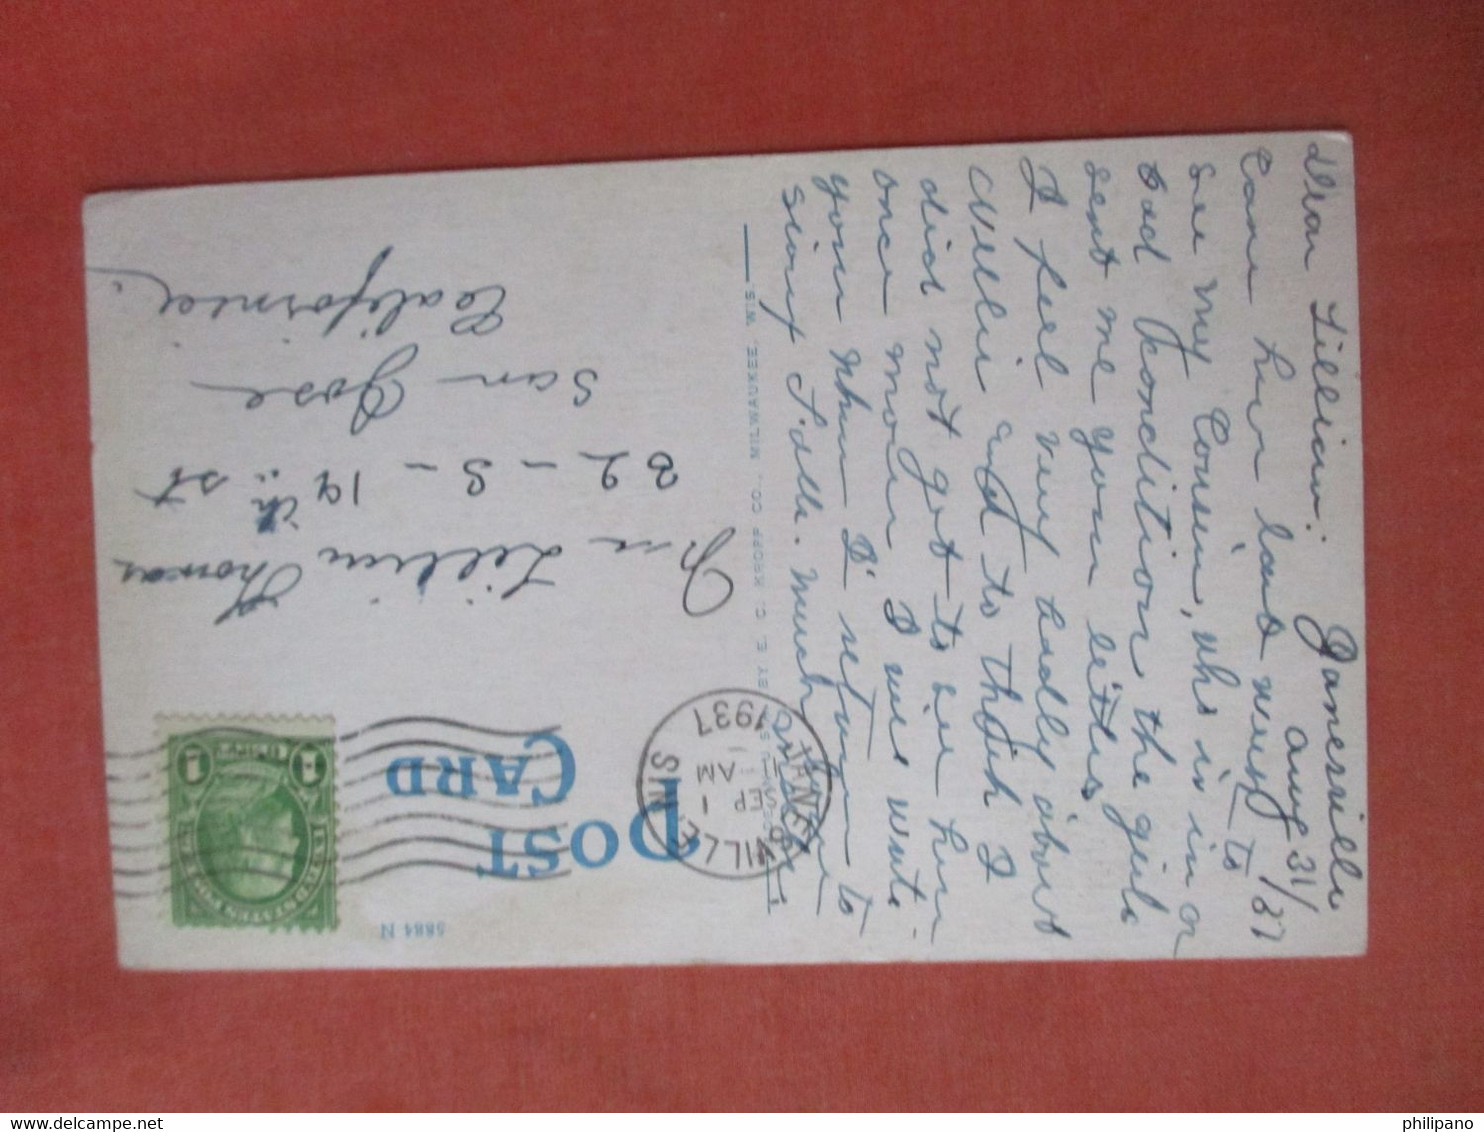 Janesville
Aug 31/37
Dear Lillian:
Came here last week to
see my Cousin, who is in a
bad kondition the girls
sent me your letter
I feel very badly about
Willie and to think I
did not get to see her
once more I will write
you when I return to
Sioux Falls. Much love
5884 N
POST
CARD
JANESVILLE
WIS.
SEP 1
AM
1937
UNITED STATES POSTAGE
1 1
Mrs Lillian Thomas
82 - S - 19 th St
San Jose
California.
BY E. C. KROPP CO., MILWAUKEE, WIS.
philipano
delcampe.net